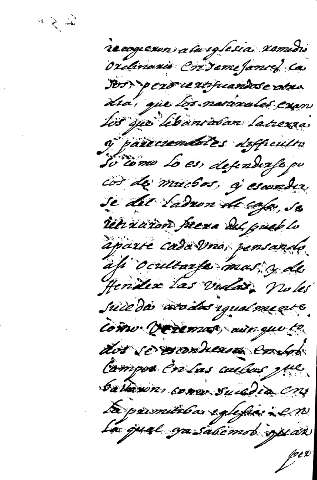 recogieron, a la yglesia remedio
ordinario en semejantes ca
sos, pero certificandose otro
dia, que los naturales eran
los que lebantaban la tierra
y pareciendoles difficulto
so como lo es, defenderse po
cos de muchos, y esconder
se del ladron de casa, se
retiraron fuera del pueblo
aparte cada uno, pensando
asi ocultarse mas, y de
ffender las vidas. No les
sucedio a todos igualmente
como veremos, aunque to
dos se escondieron en los
campos en las cuebas que
hallaron, como sucedio en
la primitiba yglesia en
la qual ya sabemos que por
per